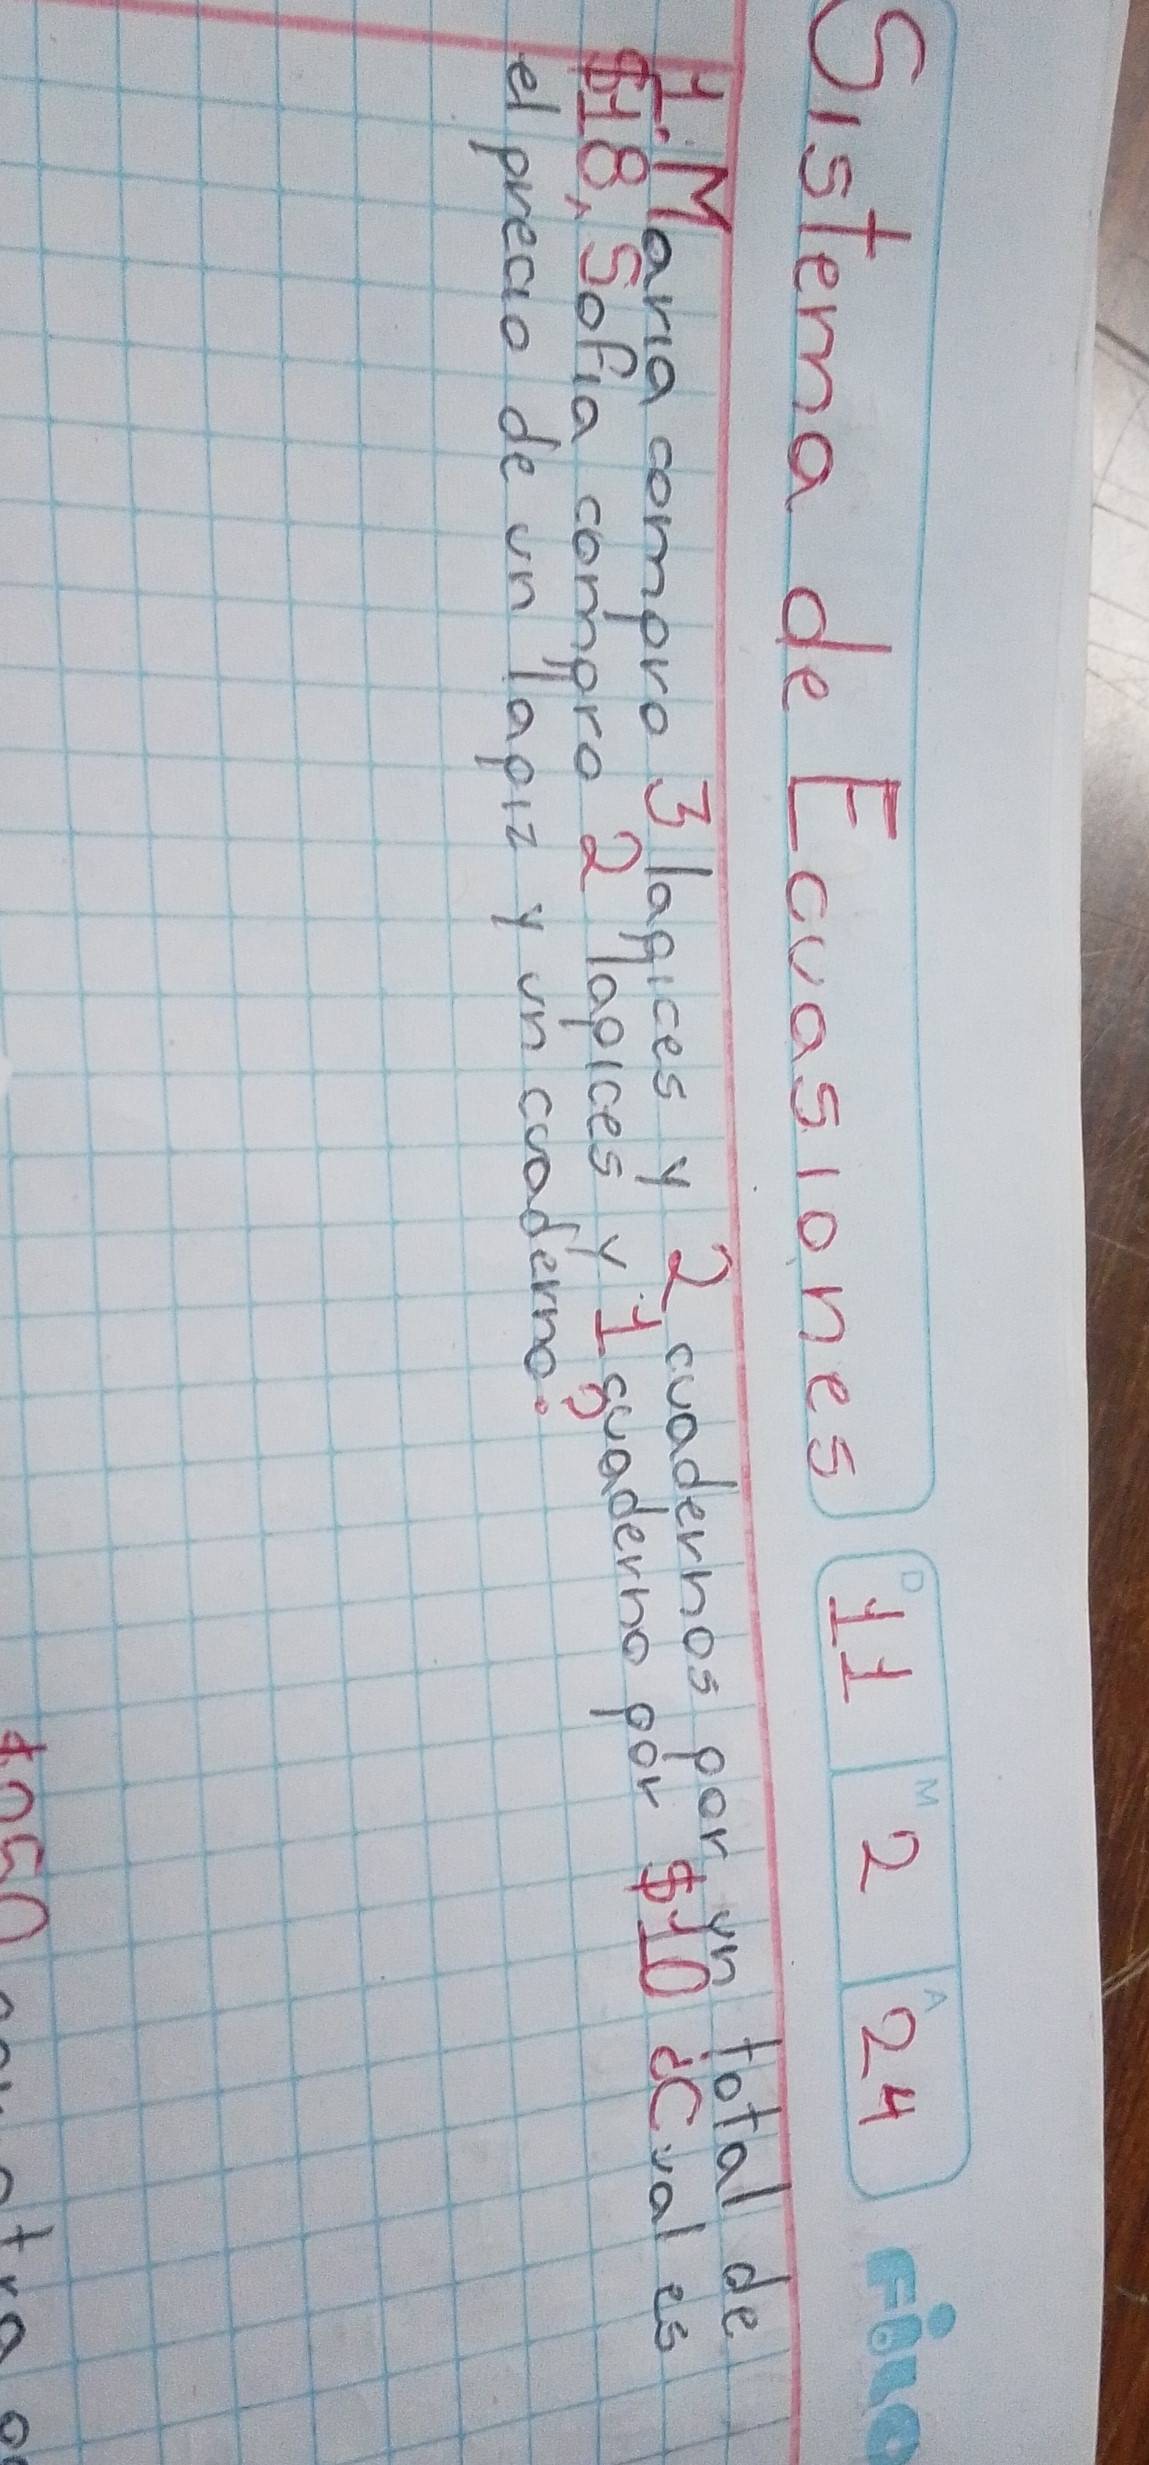 Sistema de Ecuasiones
D 11 M 2 A 24
Fino
1. Maria compro 3 lapices y 2 cuadernos por un total de
$18, Sofia compro 2 lapices y 1 cuaderno por $10 ¿Cual es
el precio de un lapiz y un cuaderno?
$050